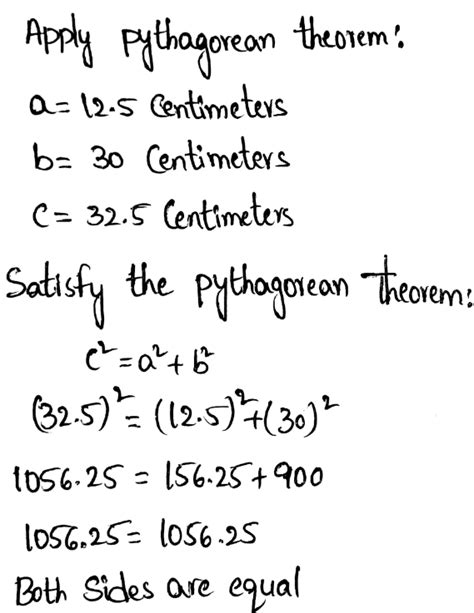 Apply pythagorean theorem:
a = 12.5 Centimeters
b = 30 Centimeters
c = 32.5 Centimeters
Satisfy the pythagorean theorem:
c² = a² + b²
(32.5)² = (12.5)² + (30)²
1056.25 = 156.25 + 900
1056.25 = 1056.25
Both Sides are equal